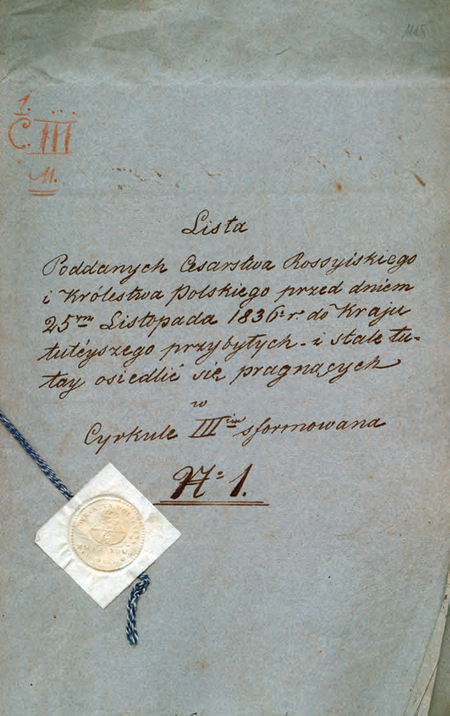 1.
C. III
M.
Lista
Poddanych Cesarstwa Rossyiskiego
i Królestwa Polskiego przed dniem
25tm Listopada 1836 r. do Kraju
tutéyszego przybyłych - i stale tu-
tay osiedlić się pragnących
w
Cyrkule IIIcim sformowana
N: 1.